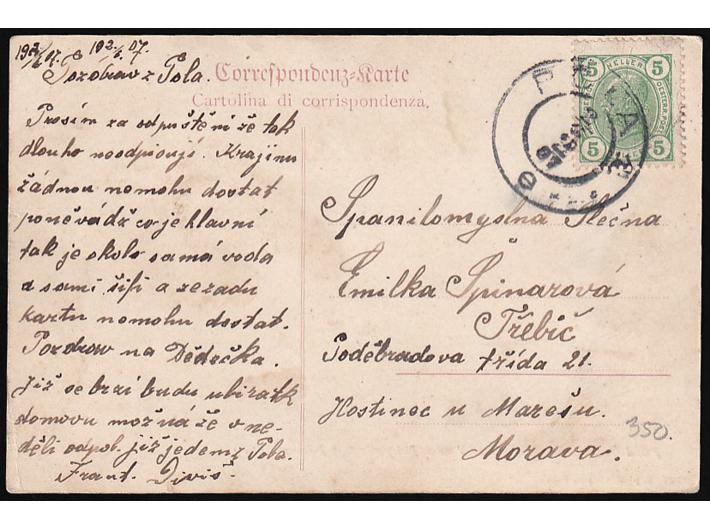 Pozdrav z Pola.
Correspondenz-Karte
Cartolina di corrispondenza.
Prosím za odpuštění že tak
dlouho neodpisuji. Krajinu
žádnou nemohu dostat
poněvádž co je hlavní
tak je skolo samá voda
a sami šifi a zezadu
kartu nemohu dostat.
Pozdraw na Dědečka.
Již se brzi budu ubírat k
domovu možná že v ne-
děli odpol. již jedem z Pola.
Frant. Diviš.
5 HELLER 5
5 5
POLA
Spanilomyslna Slečna
Emilka Špinarová
Třebíč
Poděbradova třída 21.
Hostinec u Marešu.
Morava.
350